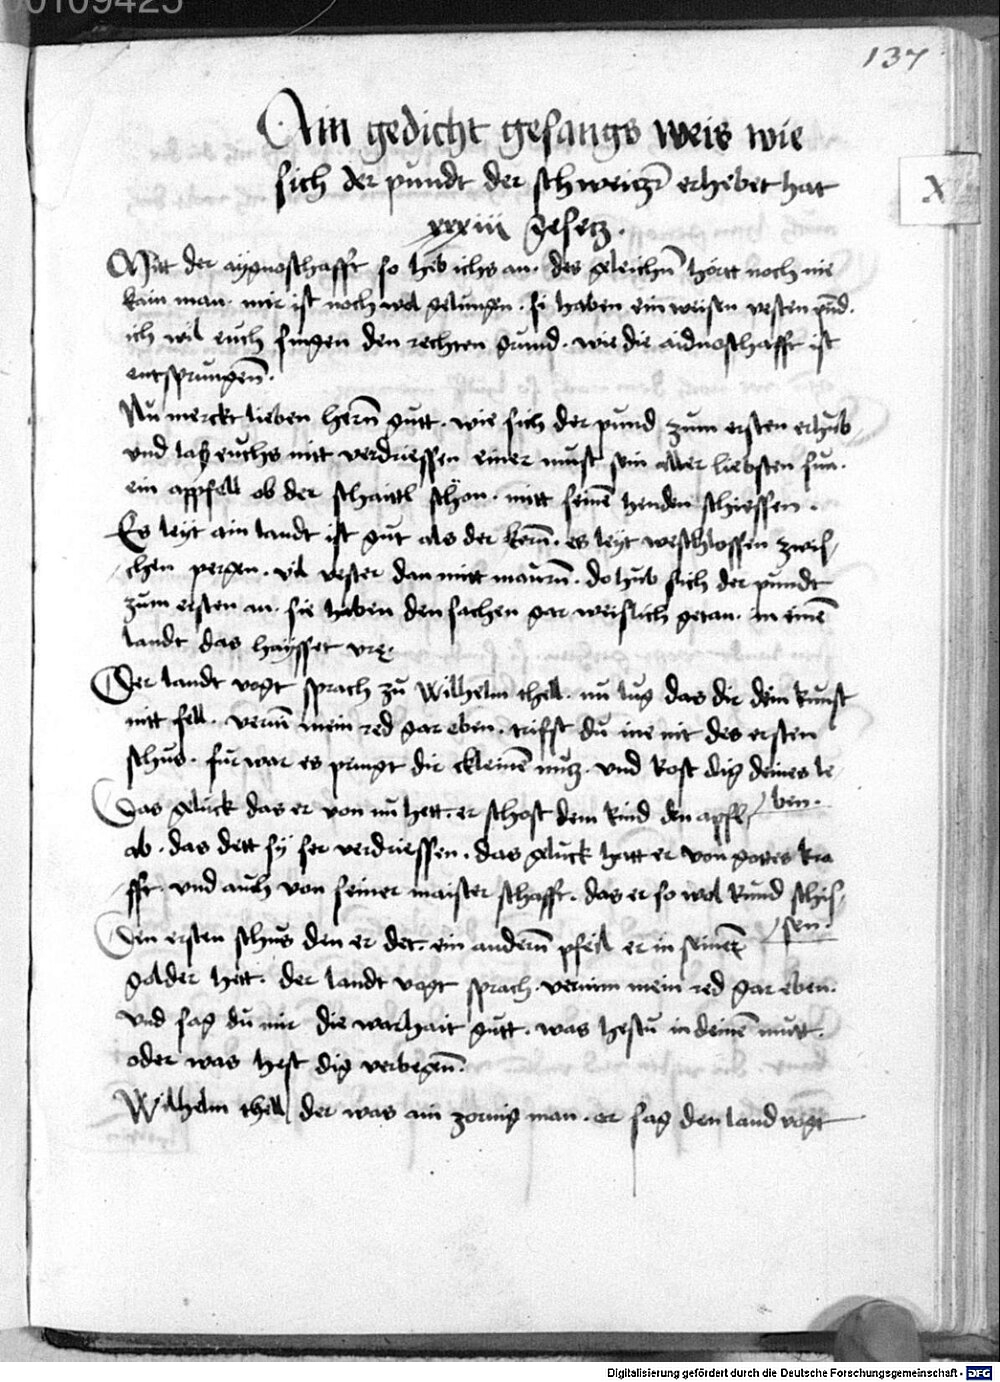 00109425
137
Ain gedicht gesangs weis wie
sich der pundt der schweitzer erhebet hat
xxxiii gesetz.
X
Mitt der aygnoschafft so heb ichs an. des gleichn hortt noch nie
kain man. mir ist noch wol gelungen. si haben ein weisen vesten pund.
ich wil euch singen den rechten grund. wie die aidnoschafft ist
entsprungen.
Nu merckt lieben hern gutt. wie sich der pund zum ersten erhub
und laß euchs nitt verdriessen einer must sein aller liebsten sun.
ein appfell ob der schaittl schon. mitt seinen henden schiessen.
Es leyt ain landt ist gut als der kern. es leyt weschlossen zwis/
chen pergen. vil vester dan mitt maurn. do hub sich der pundt
zum ersten an. sie haben den sachen gar weislich getan. in einem
landt das haysset vre.
Der landt vogt sprach zu Wilhelm thell. nu lug das dir dein kunst
nitt fell. vernim mein red gar eben. triffst du ine nit des ersten
schus. fur war es pringt dir ckleinen nutz. und kost dig deines le/
ben.
Das geluck das er von nu hett. er schost dem kind den apfl
ab. das dett sy ser verdriessen. das geluck hatt er von gottes kra
fft. und auch von seiner maister schafft. das er so wol kund schis/
sen.
Den ersten schus den er det. ein andern pfeil er in seinem
golder hett. der landt vogt sprach. vernim mein red gar eben.
Und sag du mir die warhait gutt. was hestu in deinem mutt.
oder was hest dig verwegen.
Wilhelm thell der was ain zornig man. er sag den land vogt
Digitalisierung gefördert durch die Deutsche Forschungsgemeinschaft - DFG